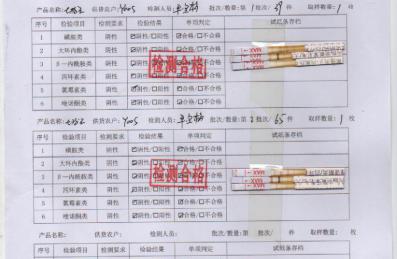 产品名称: 供货农户: Y005 检测人员: 批次/数量:第 1 批次/ 59 件 取样数量: 1 枚
序号 检验项目 检测要求 检验结果 单项判定 试纸条存档
1 磺胺类 阴性 ☑阴性/□阳性 ☑合格/□不合格
2 大环内酯类 阴性 ☑阴性/□阳性 ☑合格/□不合格
3 β-内酰胺类 阴性 ☑阴性/□阳性 ☑合格/□不合格
4 四环素类 阴性 ☑阴性/□阳性 ☑合格/□不合格
5 氯霉素类 阴性 ☑阴性/□阳性 ☑合格/□不合格
6 喹诺酮类 阴性 ☑阴性/□阳性 ☑合格/□不合格
检测合格
MAX
产品名称: 供货农户: Y005 检测人员: 批次/数量:第 2 批次/ 65 件 取样数量: 1 枚
序号 检验项目 检测要求 检验结果 单项判定 试纸条存档
1 磺胺类 阴性 ☑阴性/□阳性 ☑合格/□不合格
2 大环内酯类 阴性 ☑阴性/□阳性 ☑合格/□不合格
3 β-内酰胺类 阴性 ☑阴性/□阳性 ☑合格/□不合格
4 四环素类 阴性 ☑阴性/□阳性 ☑合格/□不合格
5 氯霉素类 阴性 ☑阴性/□阳性 ☑合格/□不合格
6 喹诺酮类 阴性 ☑阴性/□阳性 ☑合格/□不合格
检测合格
MAX
产品名称: 供货农户: 检测人员: 批次/数量:第 批次/ 件 取样数量: 枚
序号 检验项目 检测要求 检验结果 单项判定 试纸条存档